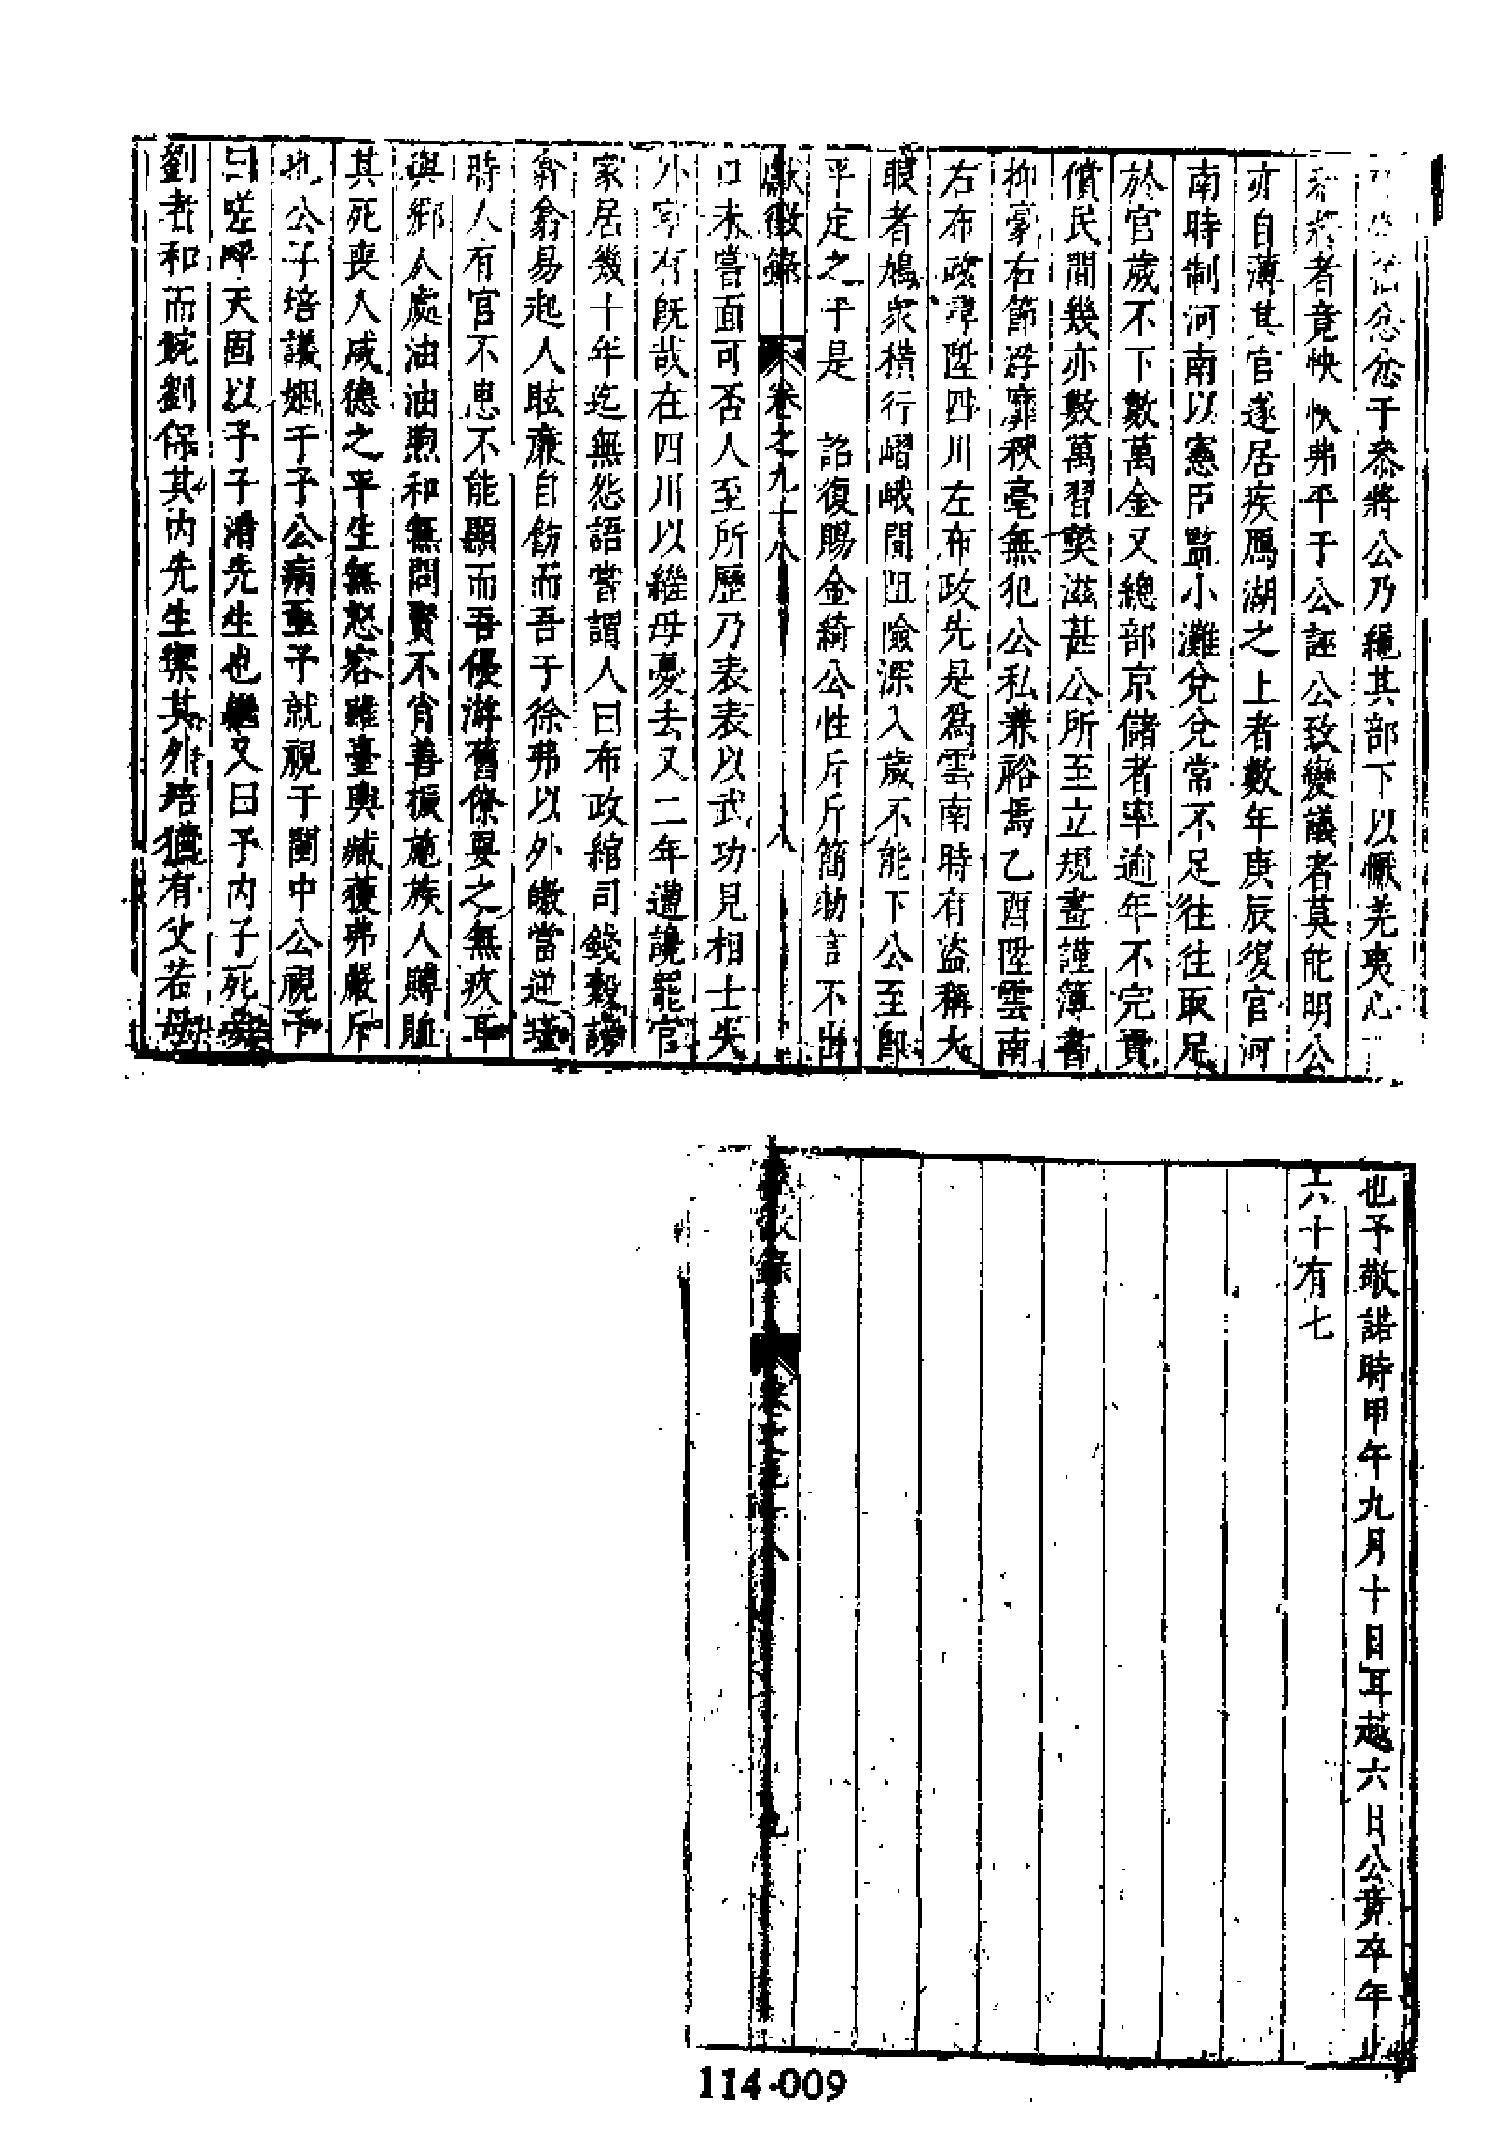 忿忿于叅將公乃繩其部下以慰羌夷心
叅將者竟怏怏弗平于公誣公致變議者莫能明公
亦自薄其官遂居疾鴈湖之上者數年庚辰復官河
南時制河南以憲臣監小灘兌兌常不足往往取足
於官歲不下數萬金又總部京儲者率逾年不完責
償民間幾亦數萬習獘滋甚公所至立規畫謹簿書
抑豪右節浮靡秋毫無犯公私兼裕焉乙酉陞雲南
右布政尋陞四川左布政先是爲雲南時有盜稱大
聝者鳩衆橫行嶍峨間阻險深入歲不能下公至即
平定之于是 詔復賜金綺公性斤斤簡勅言不出
獻徵錄 卷之九十八 八
口未嘗面可否人至所歷乃表表以武功見相士失
外寧有旣哉在四川以繼母憂去又二年遭讒罷官
家居幾十年迄無怨語嘗謂人曰布政綰司錢穀謗
易起人眩廉自飭而吾于徐弗以外皦當逆
時人有官不患不能顯而吾優游舊僚要之無疚耳
與鄉人處油油煦和無問賢不肖善振施族人賻䘏
其死喪人咸德之平生無怒容雖臺輿臧獲弗嚴斥
也公子培議姻于予公病亟予就視于閨中公視予
曰嗟呼天固以予子清先生也繼又曰予內子死毋
劉者和而婉劉保其內先生禦其外培猶有父若母
也予敬諾時甲午九月十日耳越六日公竟卒年止
六十有七
獻徵錄 卷之九十八 九
114-009